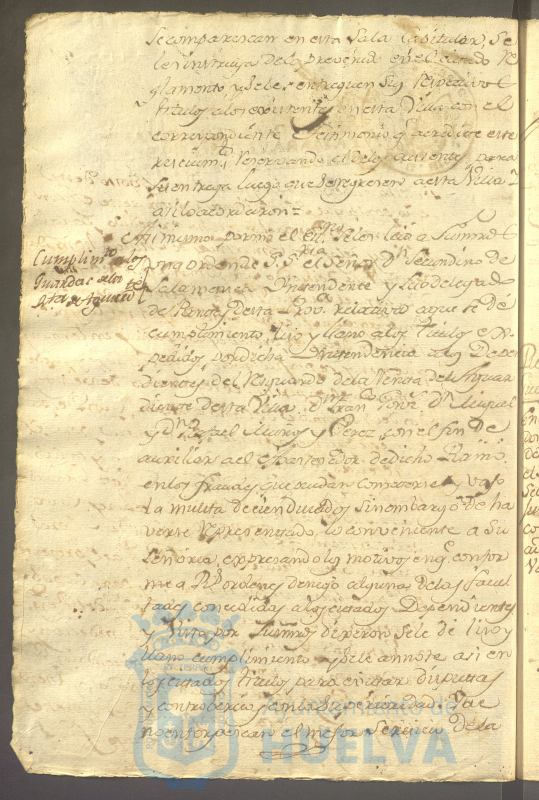 Secomparescan en esta Sala Capitular, Se
les instruya delo prevenido en el citado Re
glamento, y sele entreguen Sus respectivos
titulos alos existentes en esta Villa con el
correspondiente testimonio q acredite este
reservando el delos ausentes para
Su entrega luego que Regresen a esta Villa
asilo acordaron =
Cumplimto alos
Guardas dela
Rta de Aguard
Asi mismo por mi el esno Seles leio a Sus mrds
una orden de S. S. el Señor Dn Secundino de
Salamanca Yntendente y Subdelegado
de Rentas desta Prova relativo aque se dé
cumplimiento liso y llano alos titulos ex
pedidos por dicha Yntendencia alos Depen
dientes del Resguardo dela Renta del Aguar
diente desta Villa, dn Fran Dn Miguel
y dn Rafael Muñoz y Perez con el fin de
auxiliar a el de dicho Ramo
en los fraudes que puedan cometerse, y vajo
la multa de cien ducados Sinembargo de ha
verse Representado lo conveniente a Su
Señoria expresando los motivos en q confor
me a Rs ordenes denego alguna de las facul
tades concedidas alos citados Dependientes
y Vista por Sus mrds dixeron Sele dé liso y
llano cumplimiento y sele annote asi en
los citados titulos para evitar disputas
y controversias con la Superioridad que
no entorpescan el mejor Servicio dela
HUELVA